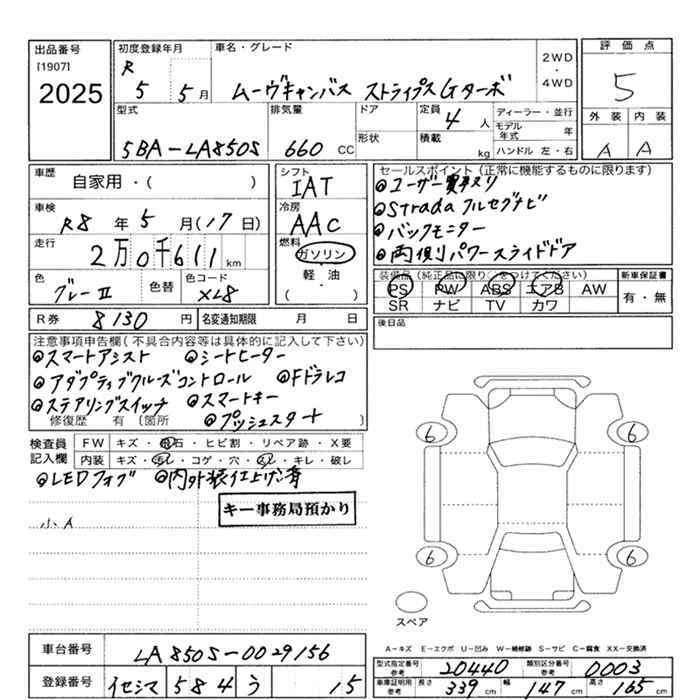 出品番号
[1907]
2025
初度登録年月
R
5 5月
車名・グレード
ムーヴキャンバス ストライプスGターボ
2WD
・
4WD
評価点
5
外装 内装
A A
型式
5BA-LA850S
排気量
660 CC
ドア
形状
定員
4人
積載
kg
ディーラー・並行
モデル年式 年
ハンドル 左・右
車歴
自家用・( )
車検
R8年5月(17日)
走行
2万0千611km
色
グレーⅡ
色替
色コード
XL8
シフト
IAT
冷房
AAC
燃料
ガソリン
・
軽・油
( )
セールスポイント(正常に機能するものに限ります)
◎ユーザー買取り
◎Stradaフルセグナビ
◎バックモニター
◎両側パワースライドドア
装備品(純正品に限り○をつけてください)
PS PW ABS エアB AW
SR ナビ TV カワ
新車保証書
有・無
R券 8130円
名変通知期限 月 日
後日品
注意事項申告欄(不具合内容等は具体的に記入して下さい)
◎スマートアシスト ◎シートヒーター
◎アダプティブクルーズコントロール ◎Fドラレコ
◎ステアリングスイッチ ◎スマートキー
修復歴 有 (箇所 ◎プッシュスタート
検査員
記入欄
FW キズ・飛石・ヒビ割・リペア跡・X要
内装 キズ・汚レ・コゲ・穴・スレ・キレ・破レ
◎LEDフォグ ◎内外装仕上げ済
キー事務局預かり
小A
6 6
6 6
スペア
A-キズ E-エクボ U-凹み W-補修跡 S-サビ C-腐食 XX-交換済
車台番号 LA850S-0029156
登録番号 イセシマ 584 う 15
型式指定番号 参考 20440
類別区分番号 参考 0003
車庫証明用 参考 長さ 339 cm 幅 147 cm 高さ 165 cm